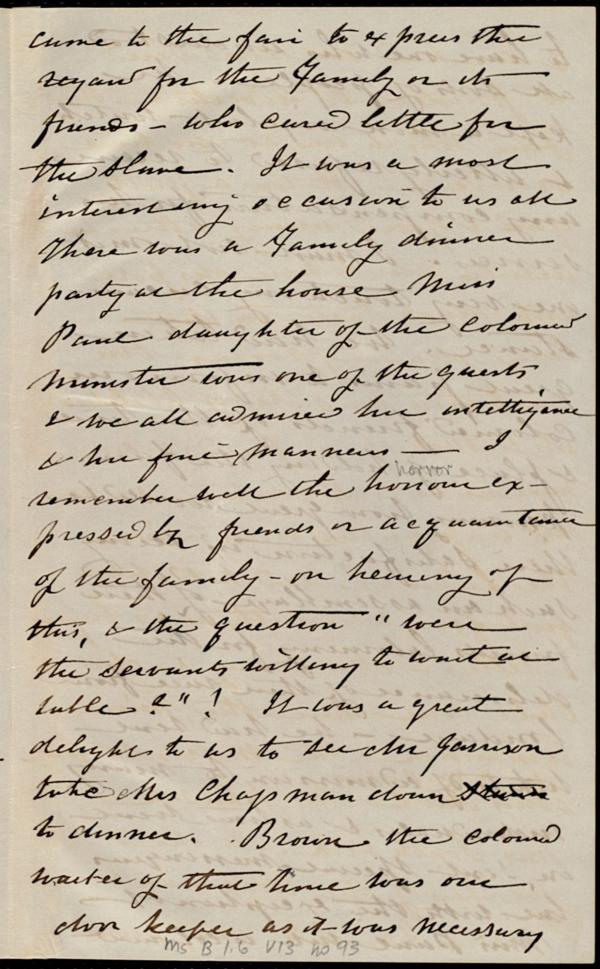 came to the fair to express their
regard for the Family or its
friends - who cared little for
the slave. It was a most
interesting occasion to us all
There was a Family dinner
party at the house Miss
Paul daughter of the colored
minister was one of the guests
& we all admired her intelligence
& her fine manners — I
horror
remember well the horrour ex-
pressed by friends or acquaintance
of the family - on hearing of
this, & the question "were
the servants willing to wait at
table?"! It was a great
delight to us to see Mr Garrison
take Mrs Chapman down stairs
to dinner. Brown the colored
waiter of that time was our
door keeper as it was necessary
Ms B 1.6 V13 no 93